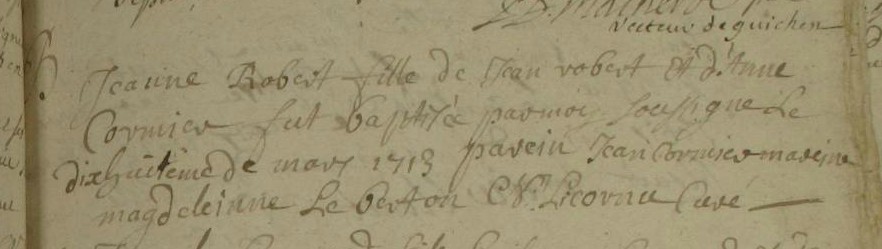 recteur de guichen
Jeanne Robert fille de Jean robert Et d'Anne
Cormier fut baptisée par moy soussigne Le
dixhuitieme de mars 1713 parein Jean Cormier mareine
magdeleinne Le berton Licornu Curé